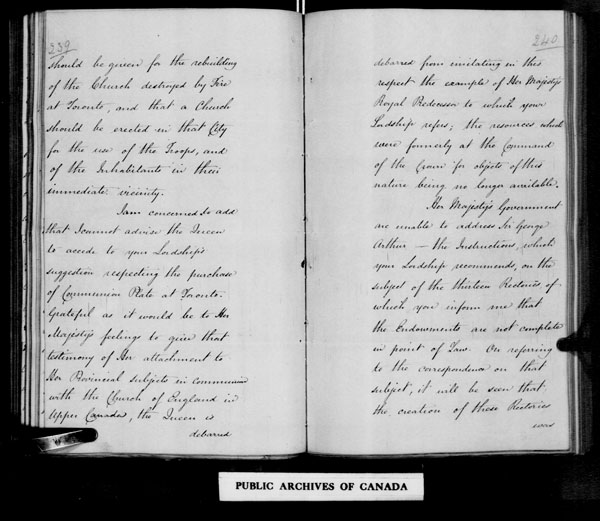 239
should be given for the rebuilding
of the Church destroyed by Fire
at Toronto, and that a Church
should be erected in that City
for the use of the Troops, and
of the Inhabitants in their
immediate vicinity.
I am concerned to add
that I cannot advise the Queen
to accede to your Lordship's
suggestion respecting the purchase
of Communion Plate at Toronto.
Grateful as it would be to Her
Majesty's feelings to give that
testimony of Her attachment to
Her Provincial subjects in communion
with the Church of England in
Upper Canada, the Queen is
debarred
240
debarred from imitating in this
respect the example of Her Majesty's
Royal Predecessor to which your
Lordship refers; the resources which
were formerly at the Command
of the Crown for objects of this
nature being no longer available.
Her Majesty's Government
are unable to address Sir George
Arthur — the Instructions, which
your Lordship recommends, on the
subject of the thirteen Rectories of
which you inform me that
the Endowments are not complete
in point of Law. On referring
to the correspondence on that
subject, it will be seen that
the creation of these Rectories
was
PUBLIC ARCHIVES OF CANADA